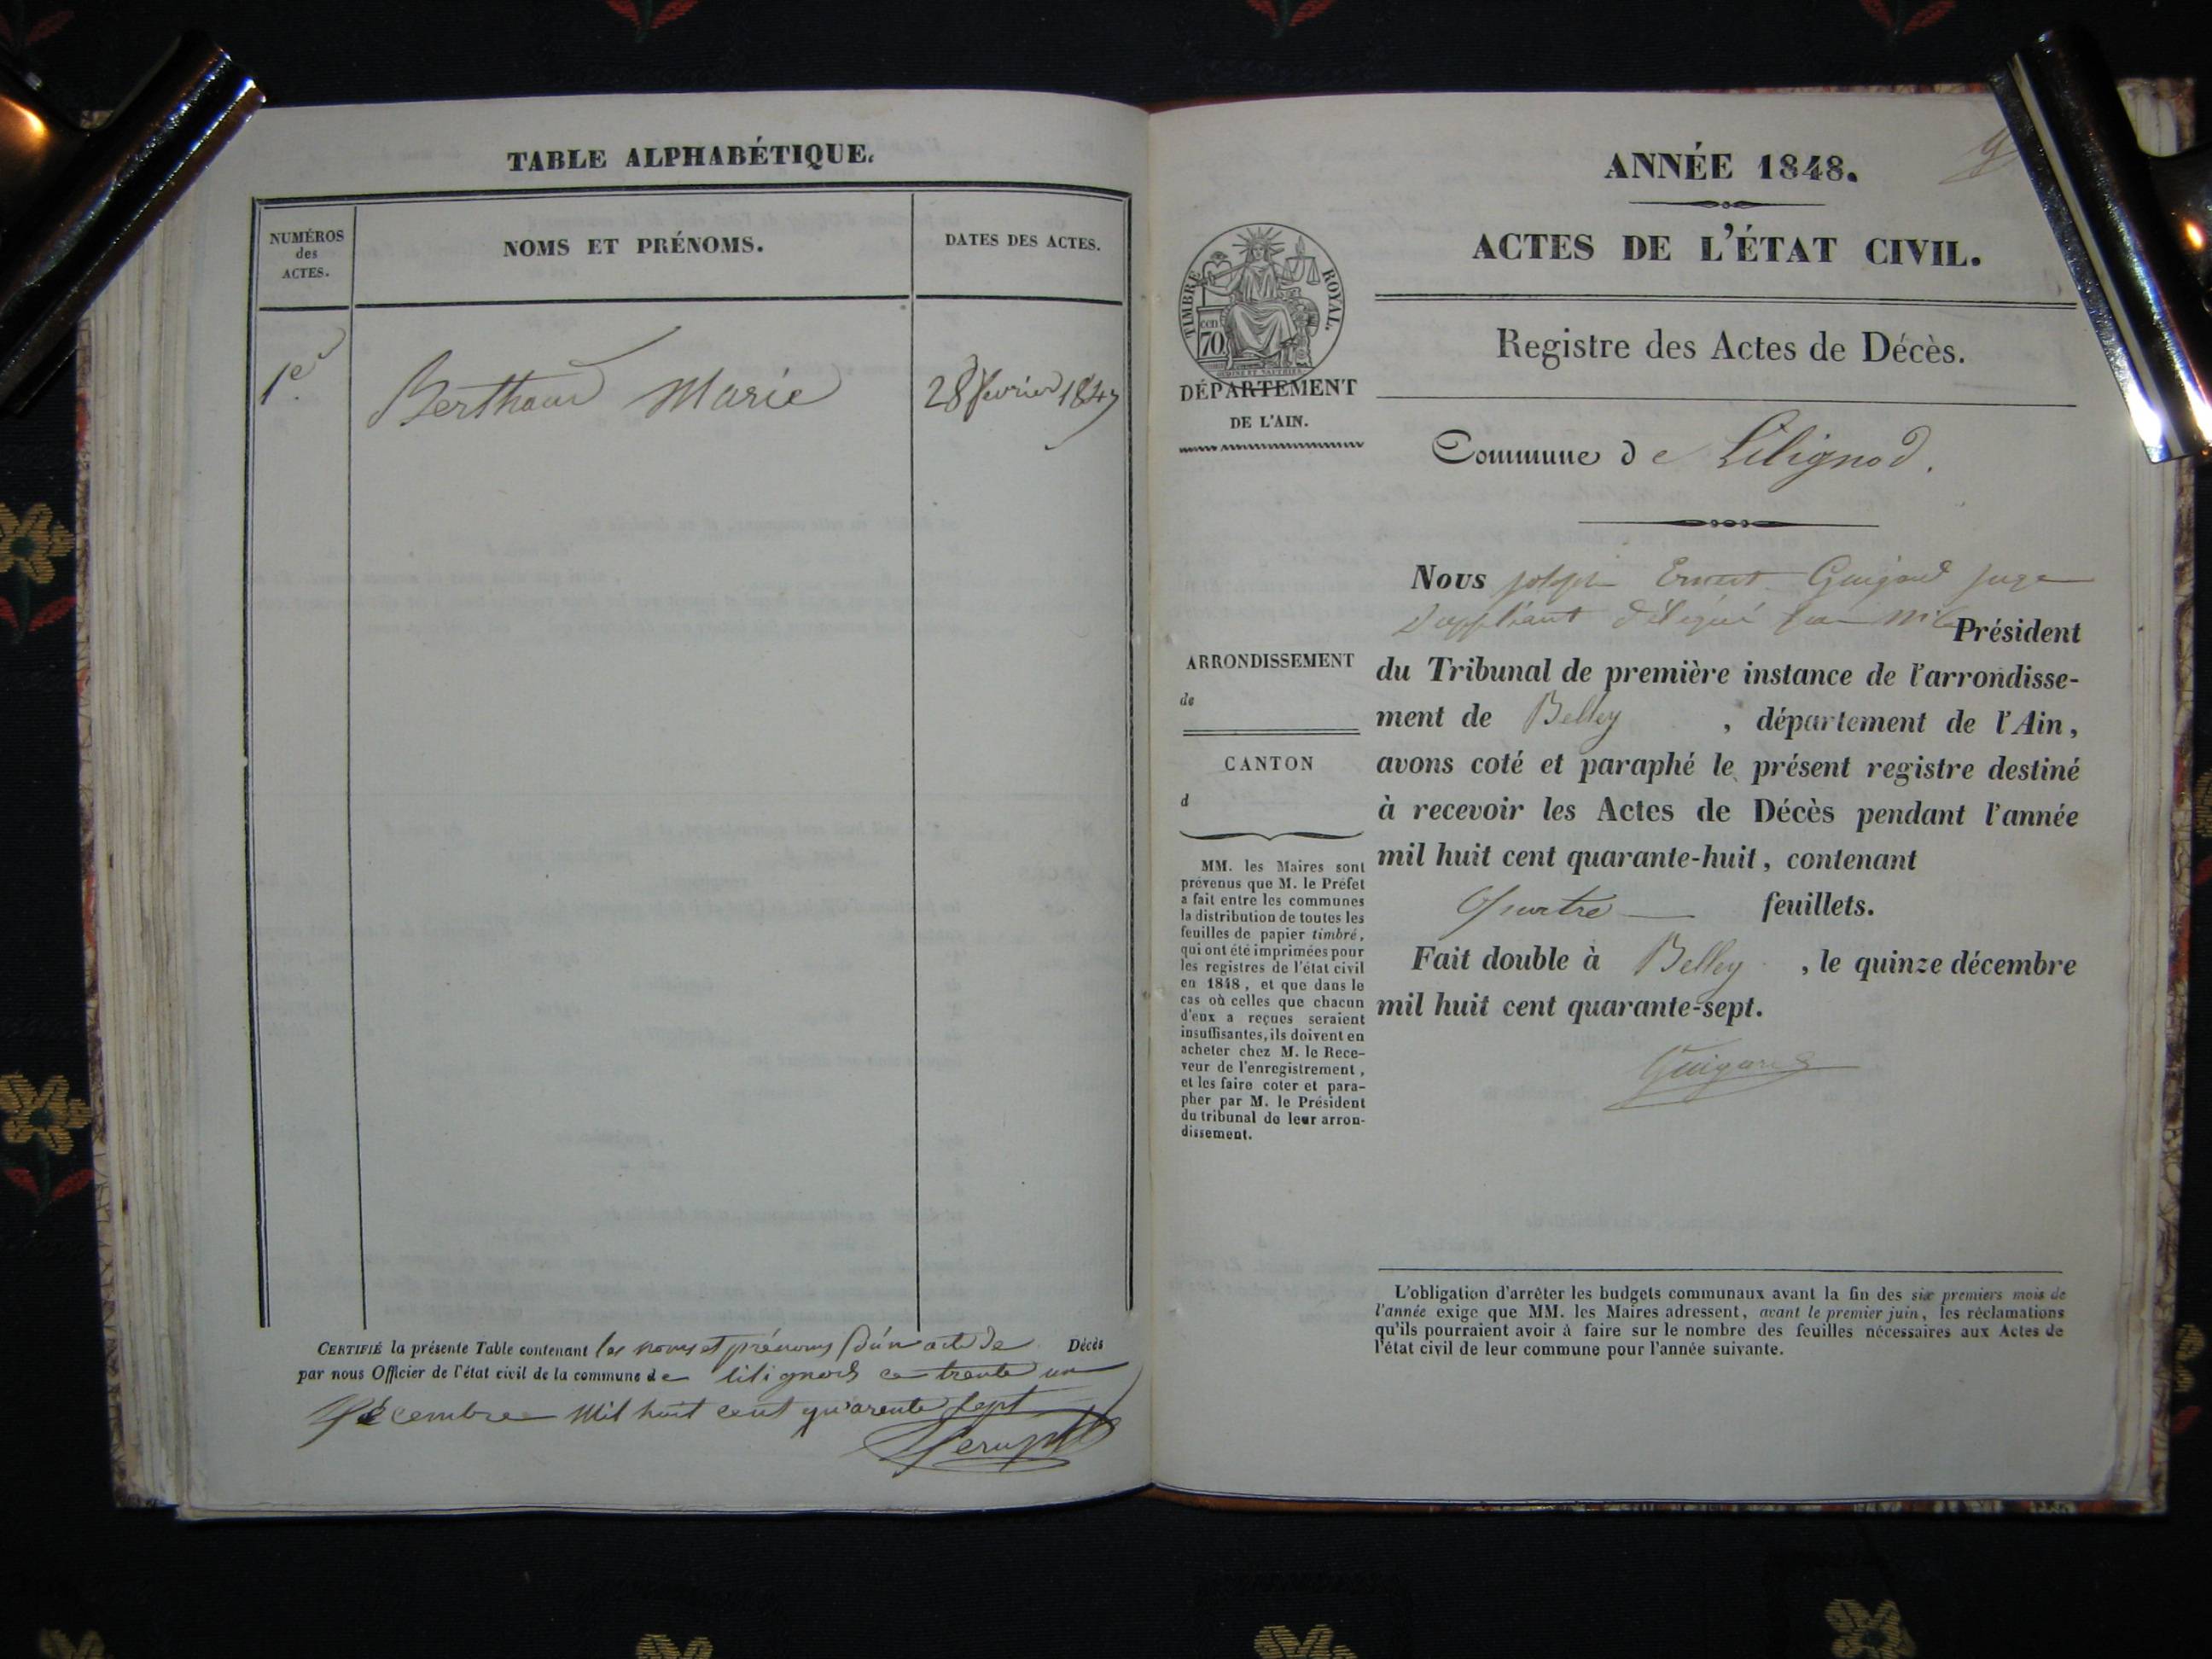 TABLE ALPHABÉTIQUE.
NUMÉROS
des
ACTES.
NOMS ET PRÉNOMS.
DATES DES ACTES.
1er
Berthaud Marie
28 fevrier 1847
CERTIFIÉ la présente Table contenant les noms et prénoms d'un acte de Décès
par nous Officier de l'état civil de la commune de lilignod ce trente un
Décembre Mil huit cent quarente sept
ANNÉE 1848.
ACTES DE L'ÉTAT CIVIL.
TIMBRE ROYAL.
cen
70
DÉPARTEMENT
DE L'AIN.
Registre des Actes de Décès.
Commune de Lilignod.
Nous joseph Ernest Guigard juge
Suppléant délégué par Mr le Président
du Tribunal de première instance de l'arrondisse-
ment de Belley, département de l'Ain,
avons coté et paraphé le présent registre destiné
à recevoir les Actes de Décès pendant l'année
mil huit cent quarante-huit, contenant
Quatre feuillets.
Fait double à Belley, le quinze décembre
mil huit cent quarante-sept.
Guigard
ARRONDISSEMENT
de
CANTON
d
MM. les Maires sont
prévenus que M. le Préfet
a fait entre les communes
la distribution de toutes les
feuilles de papier timbré,
qui ont été imprimées pour
les registres de l'état civil
en 1848, et que dans le
cas où celles que chacun
d'eux a reçues seraient
insuffisantes, ils doivent en
acheter chez M. le Rece-
veur de l'enregistrement,
et les faire coter et para-
pher par M. le Président
du tribunal de leur arron-
dissement.
L'obligation d'arrêter les budgets communaux avant la fin des six premiers mois de
l'année exige que MM. les Maires adressent, avant le premier juin, les réclamations
qu'ils pourraient avoir à faire sur le nombre des feuilles nécessaires aux Actes de
l'état civil de leur commune pour l'année suivante.